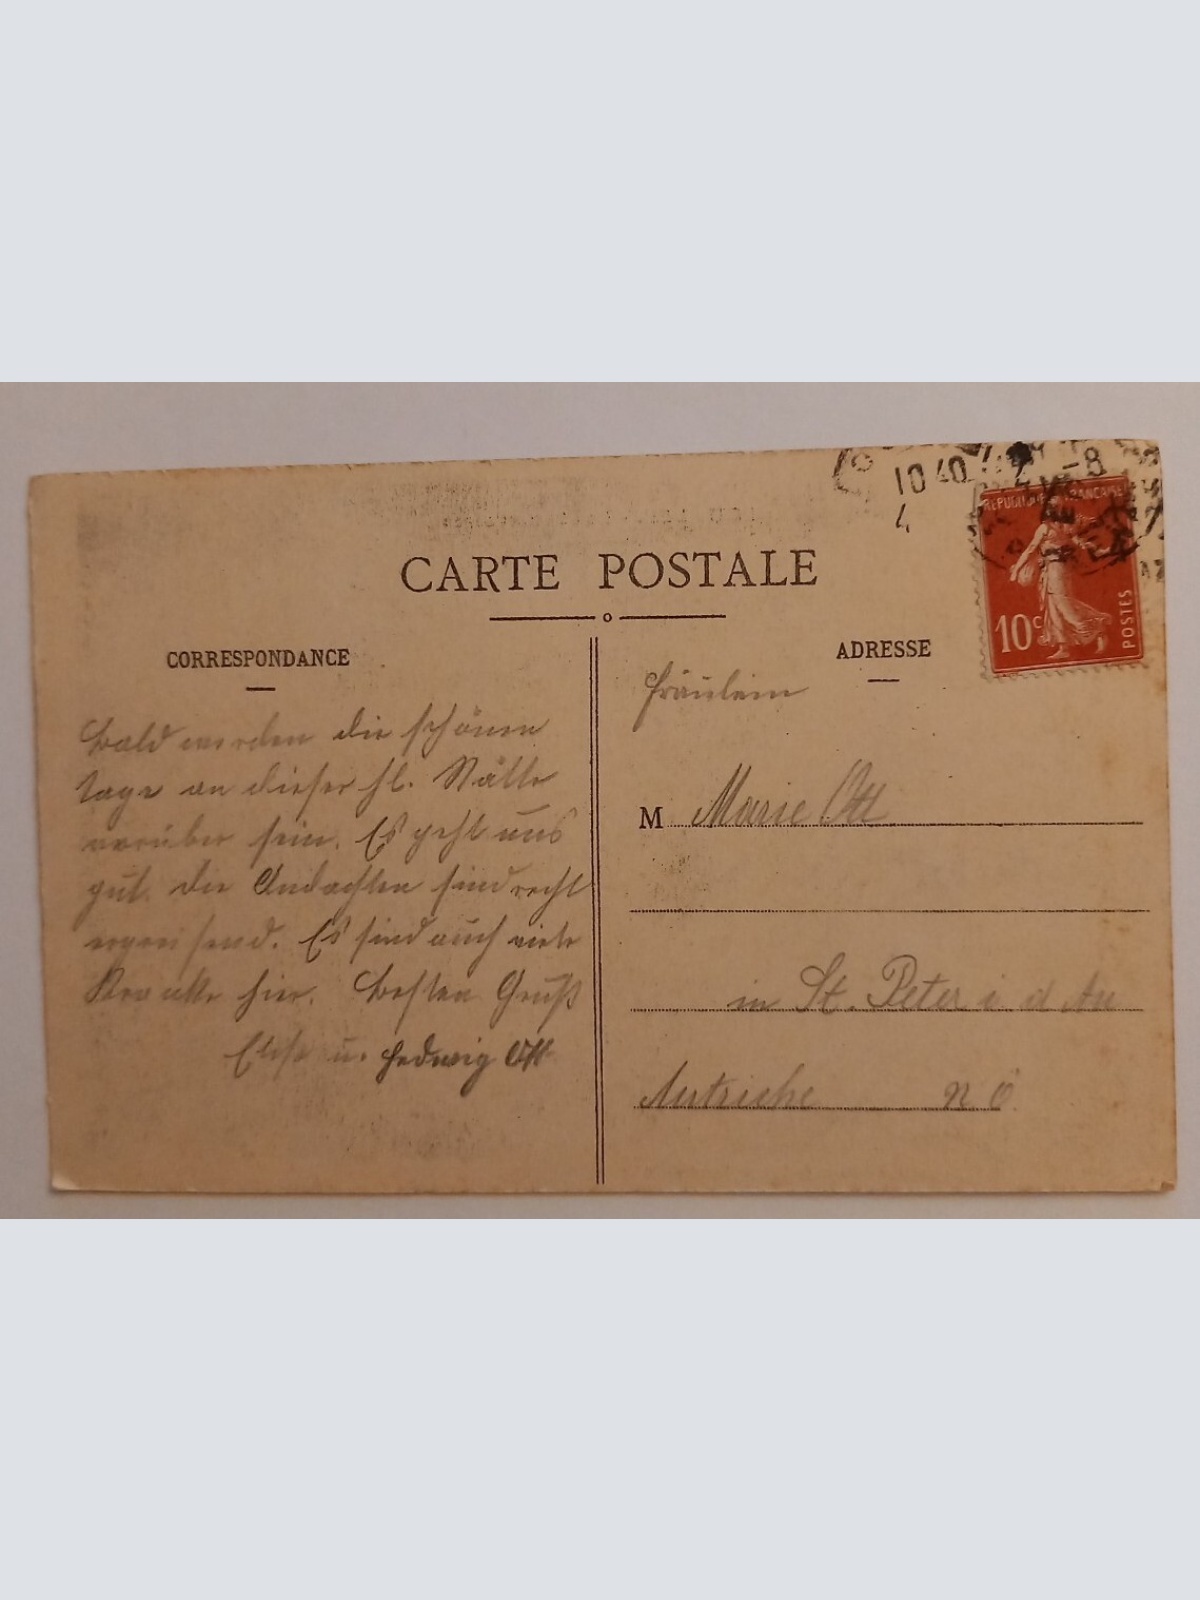 10 40
4
-8
RÉPUBLIQUE FRANÇAISE
10c
POSTES
CARTE POSTALE
CORRESPONDANCE
Bald werden die schönen
Tage an dieser hl. Stätte
vorüber sein. Es geht uns
gut. Die Andachten sind recht
ergreifend. Es sind auch viele
Kranke hier. Besten Gruß
u. Hedwig Ott
ADRESSE
Fräulein
M Marie Ott
in St. Peter i d Au
Autriche N Ö